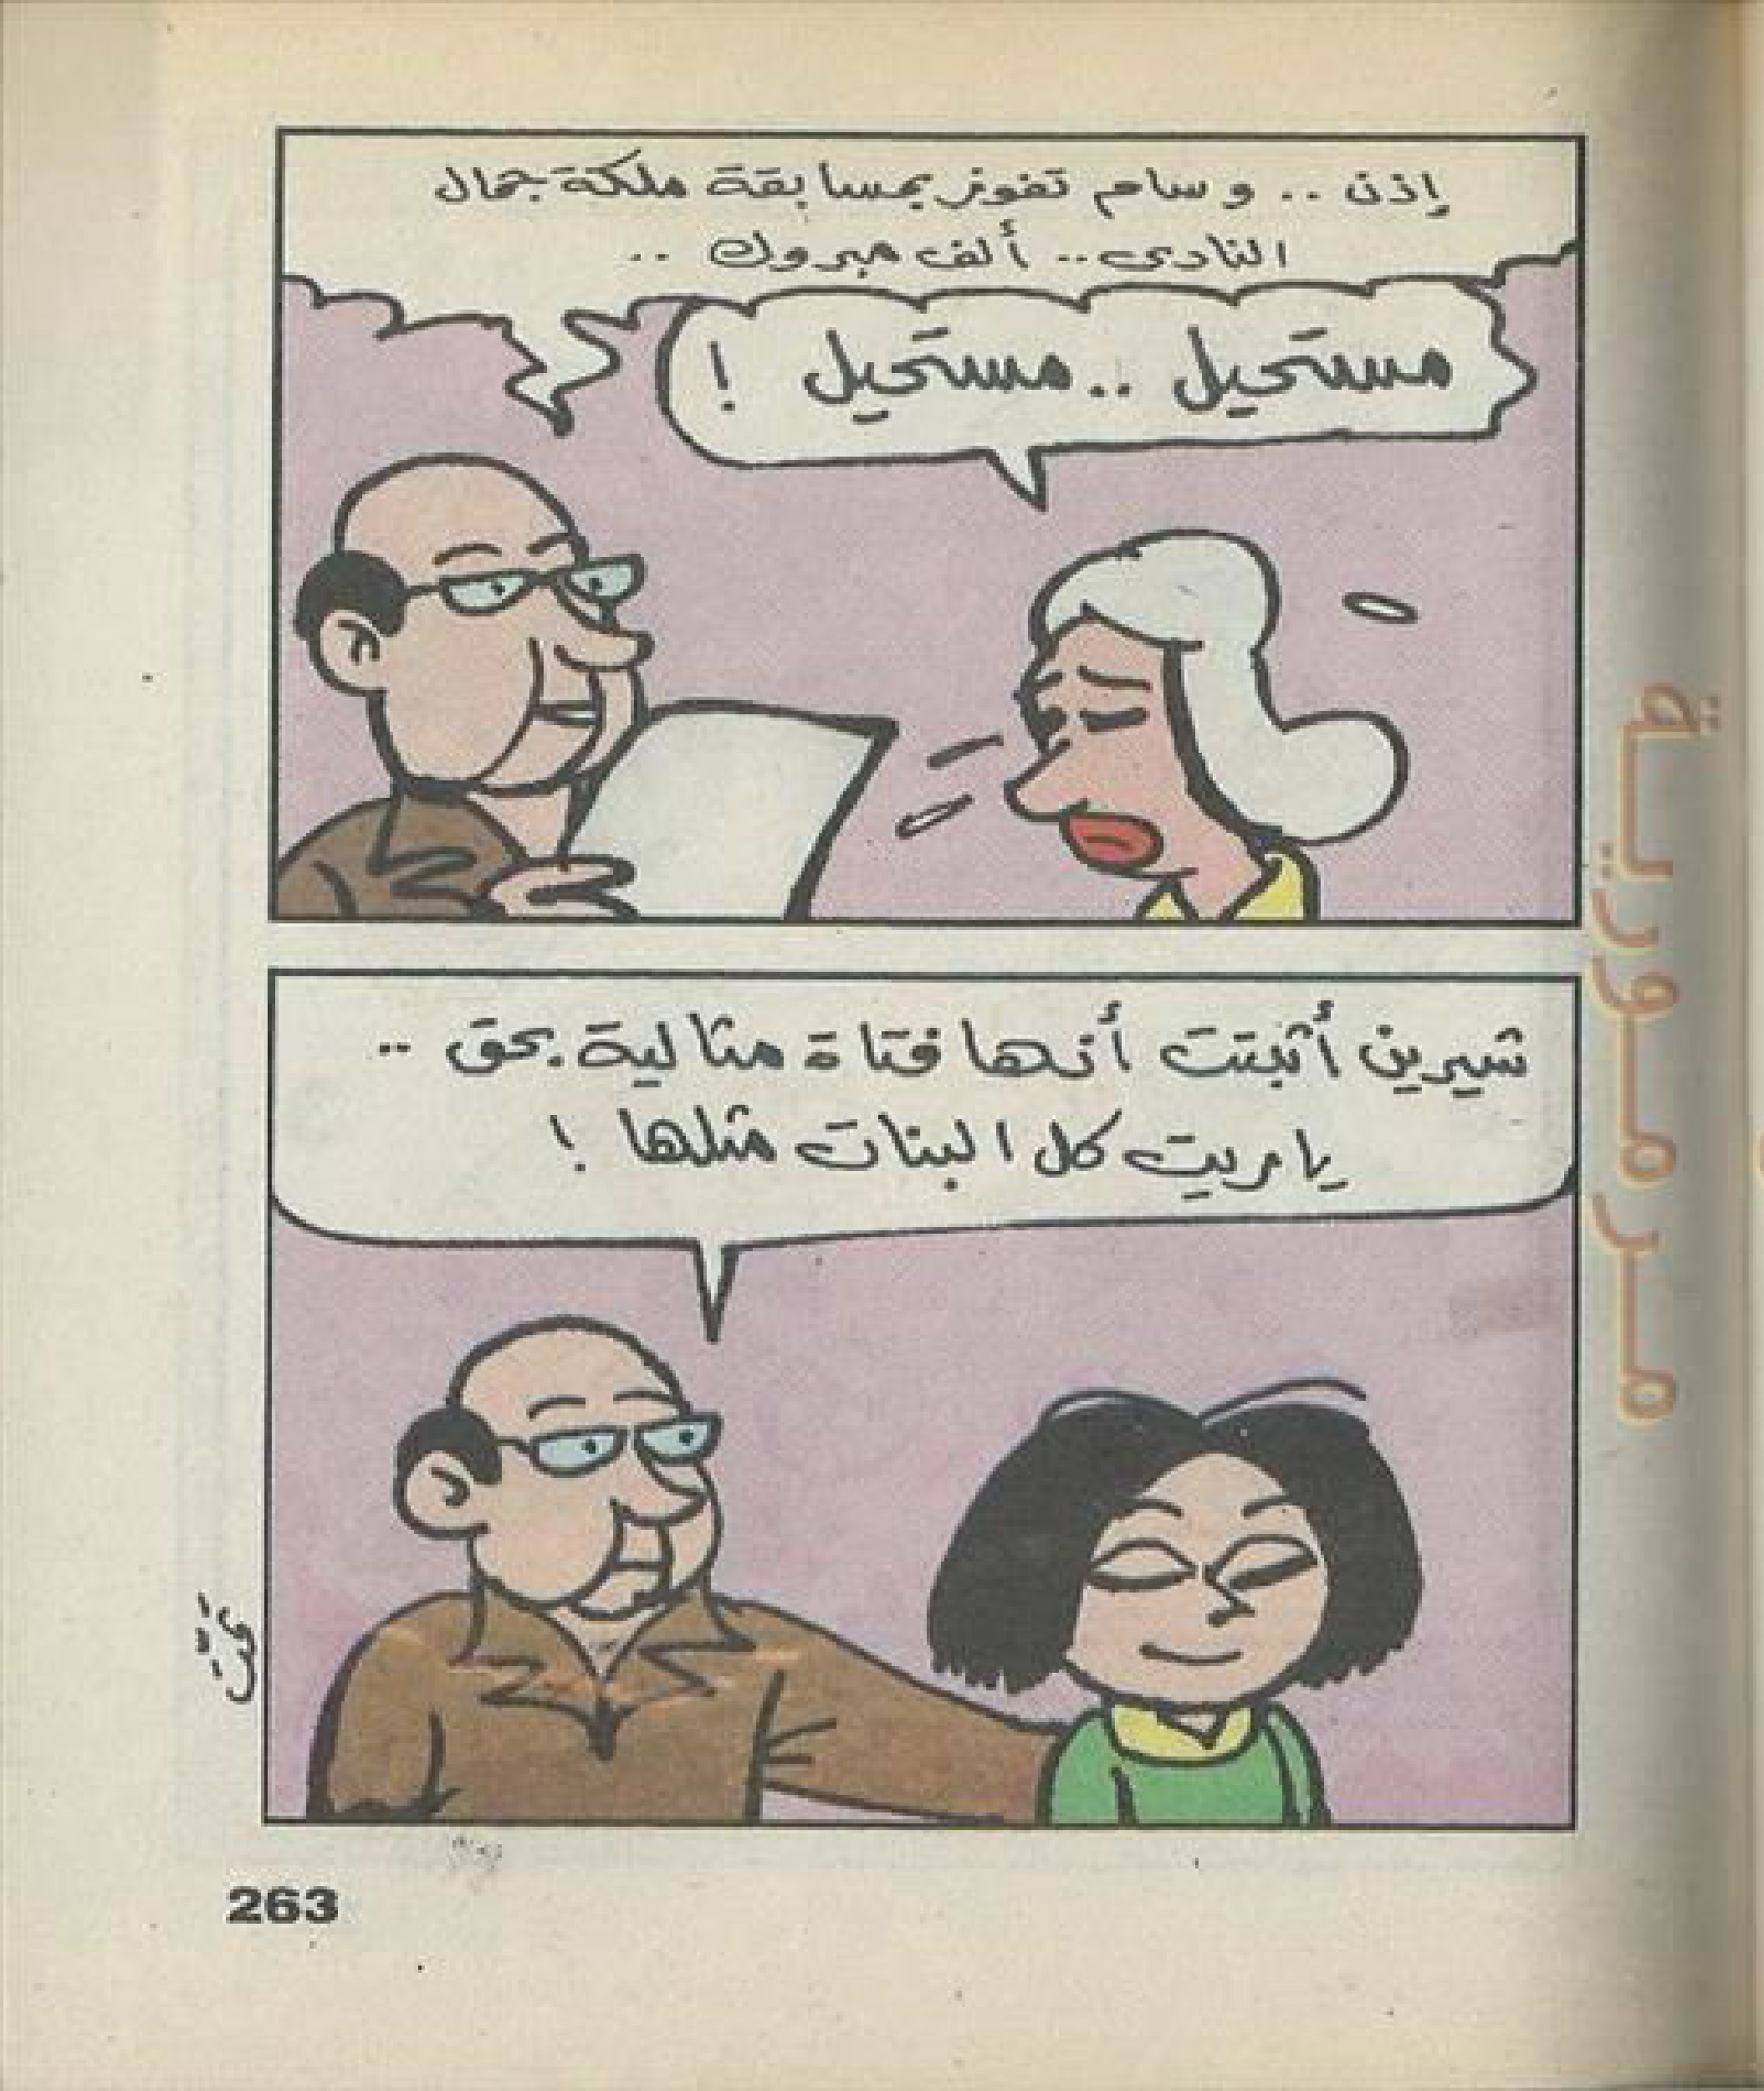 إذن .. وسام تفوز بمسابقة ملكة جمال
النادى .. ألف مبروك ..
مستحيل .. مستحيل !
شيرين أثبتت أنها فتاة مثالية بحق ..
ياريت كل البنات مثلها !
263
مرمورية